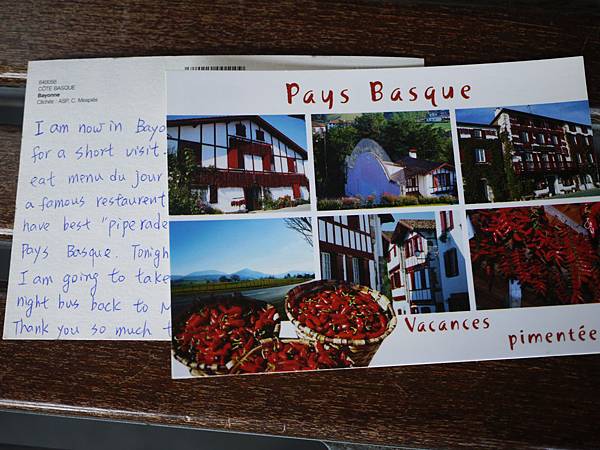 640056
CÔTE BASQUE
Bayonne
Clichés : ASP, C. Mespiès
I am now in Bayo
for a short visit.
eat menu du jour
a famous restaurent
have best "piperade
Pays Basque. Tonigh
I am going to take
night bus back to
Thank you so much
Pays Basque
Vacances
pimentée